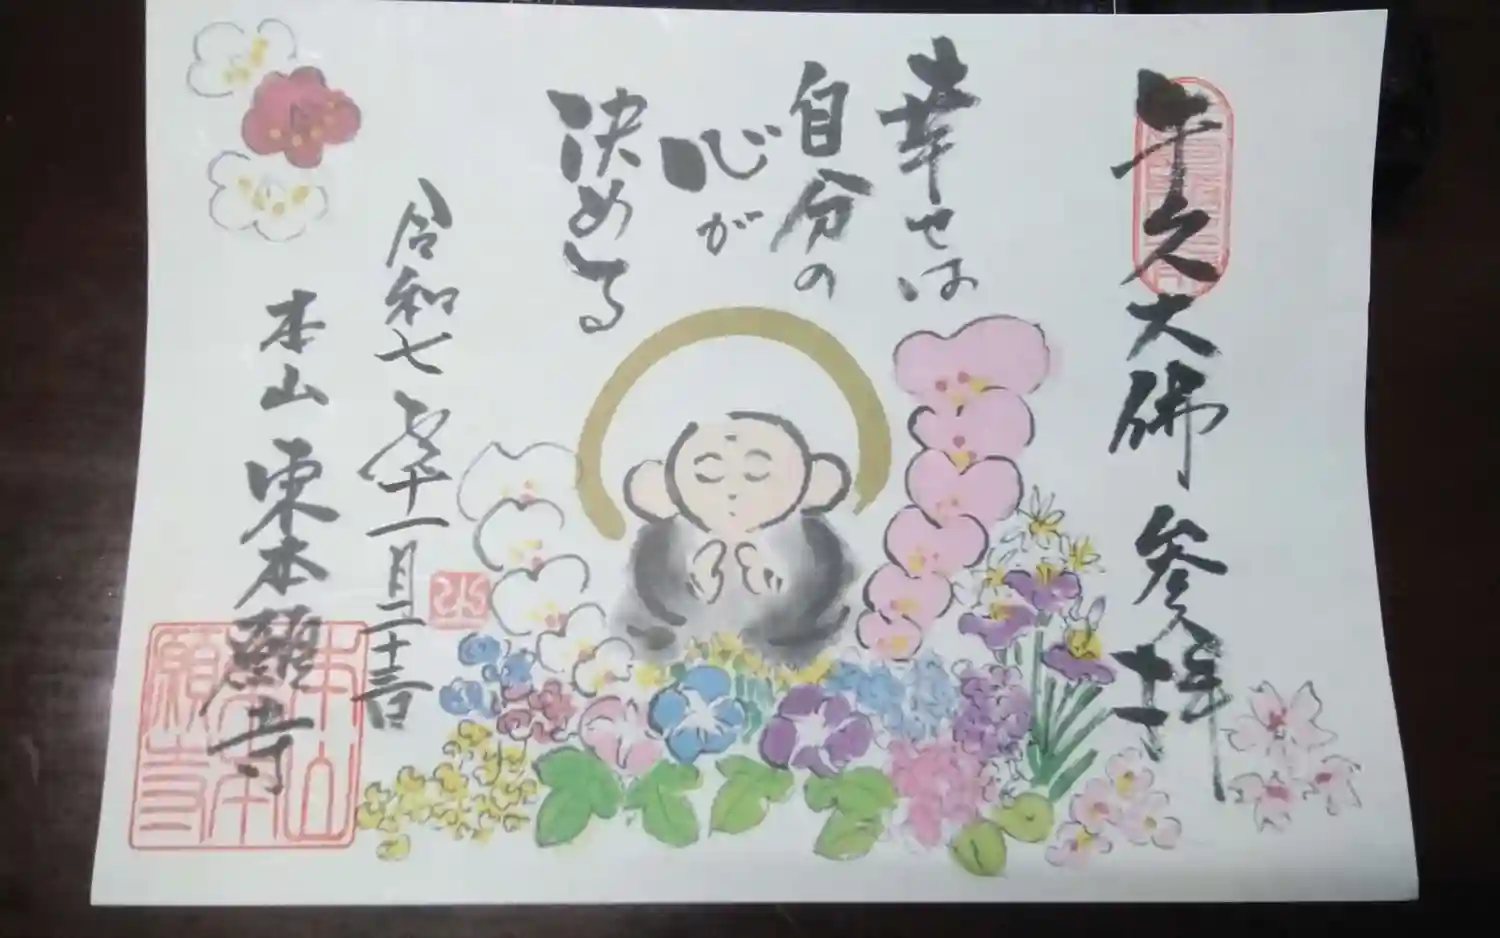 牛久大佛 参拝
幸せは
自分の
心が
決める
令和七年十一月二十三日
本山 東本願寺